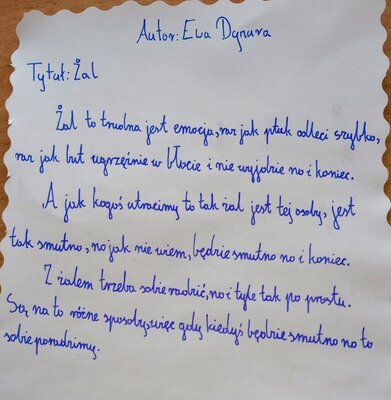 Autor: Ewa Dynura
Tytuł: Żal
Żal to trudna jest emocja, raz jak ptak odleci szybko,
raz jak but ugrzęźnie w błocie i nie wyjdzie no i koniec.
A jak kogoś utracimy to tak żal jest tej osoby, jest
tak smutno, no jak nie wiem, będzie smutno no i koniec.
Z żalem trzeba sobie radzić, no i tyle tak po prostu.
Są na to różne sposoby, więc gdy kiedyś będzie smutno no to
sobie poradzimy.